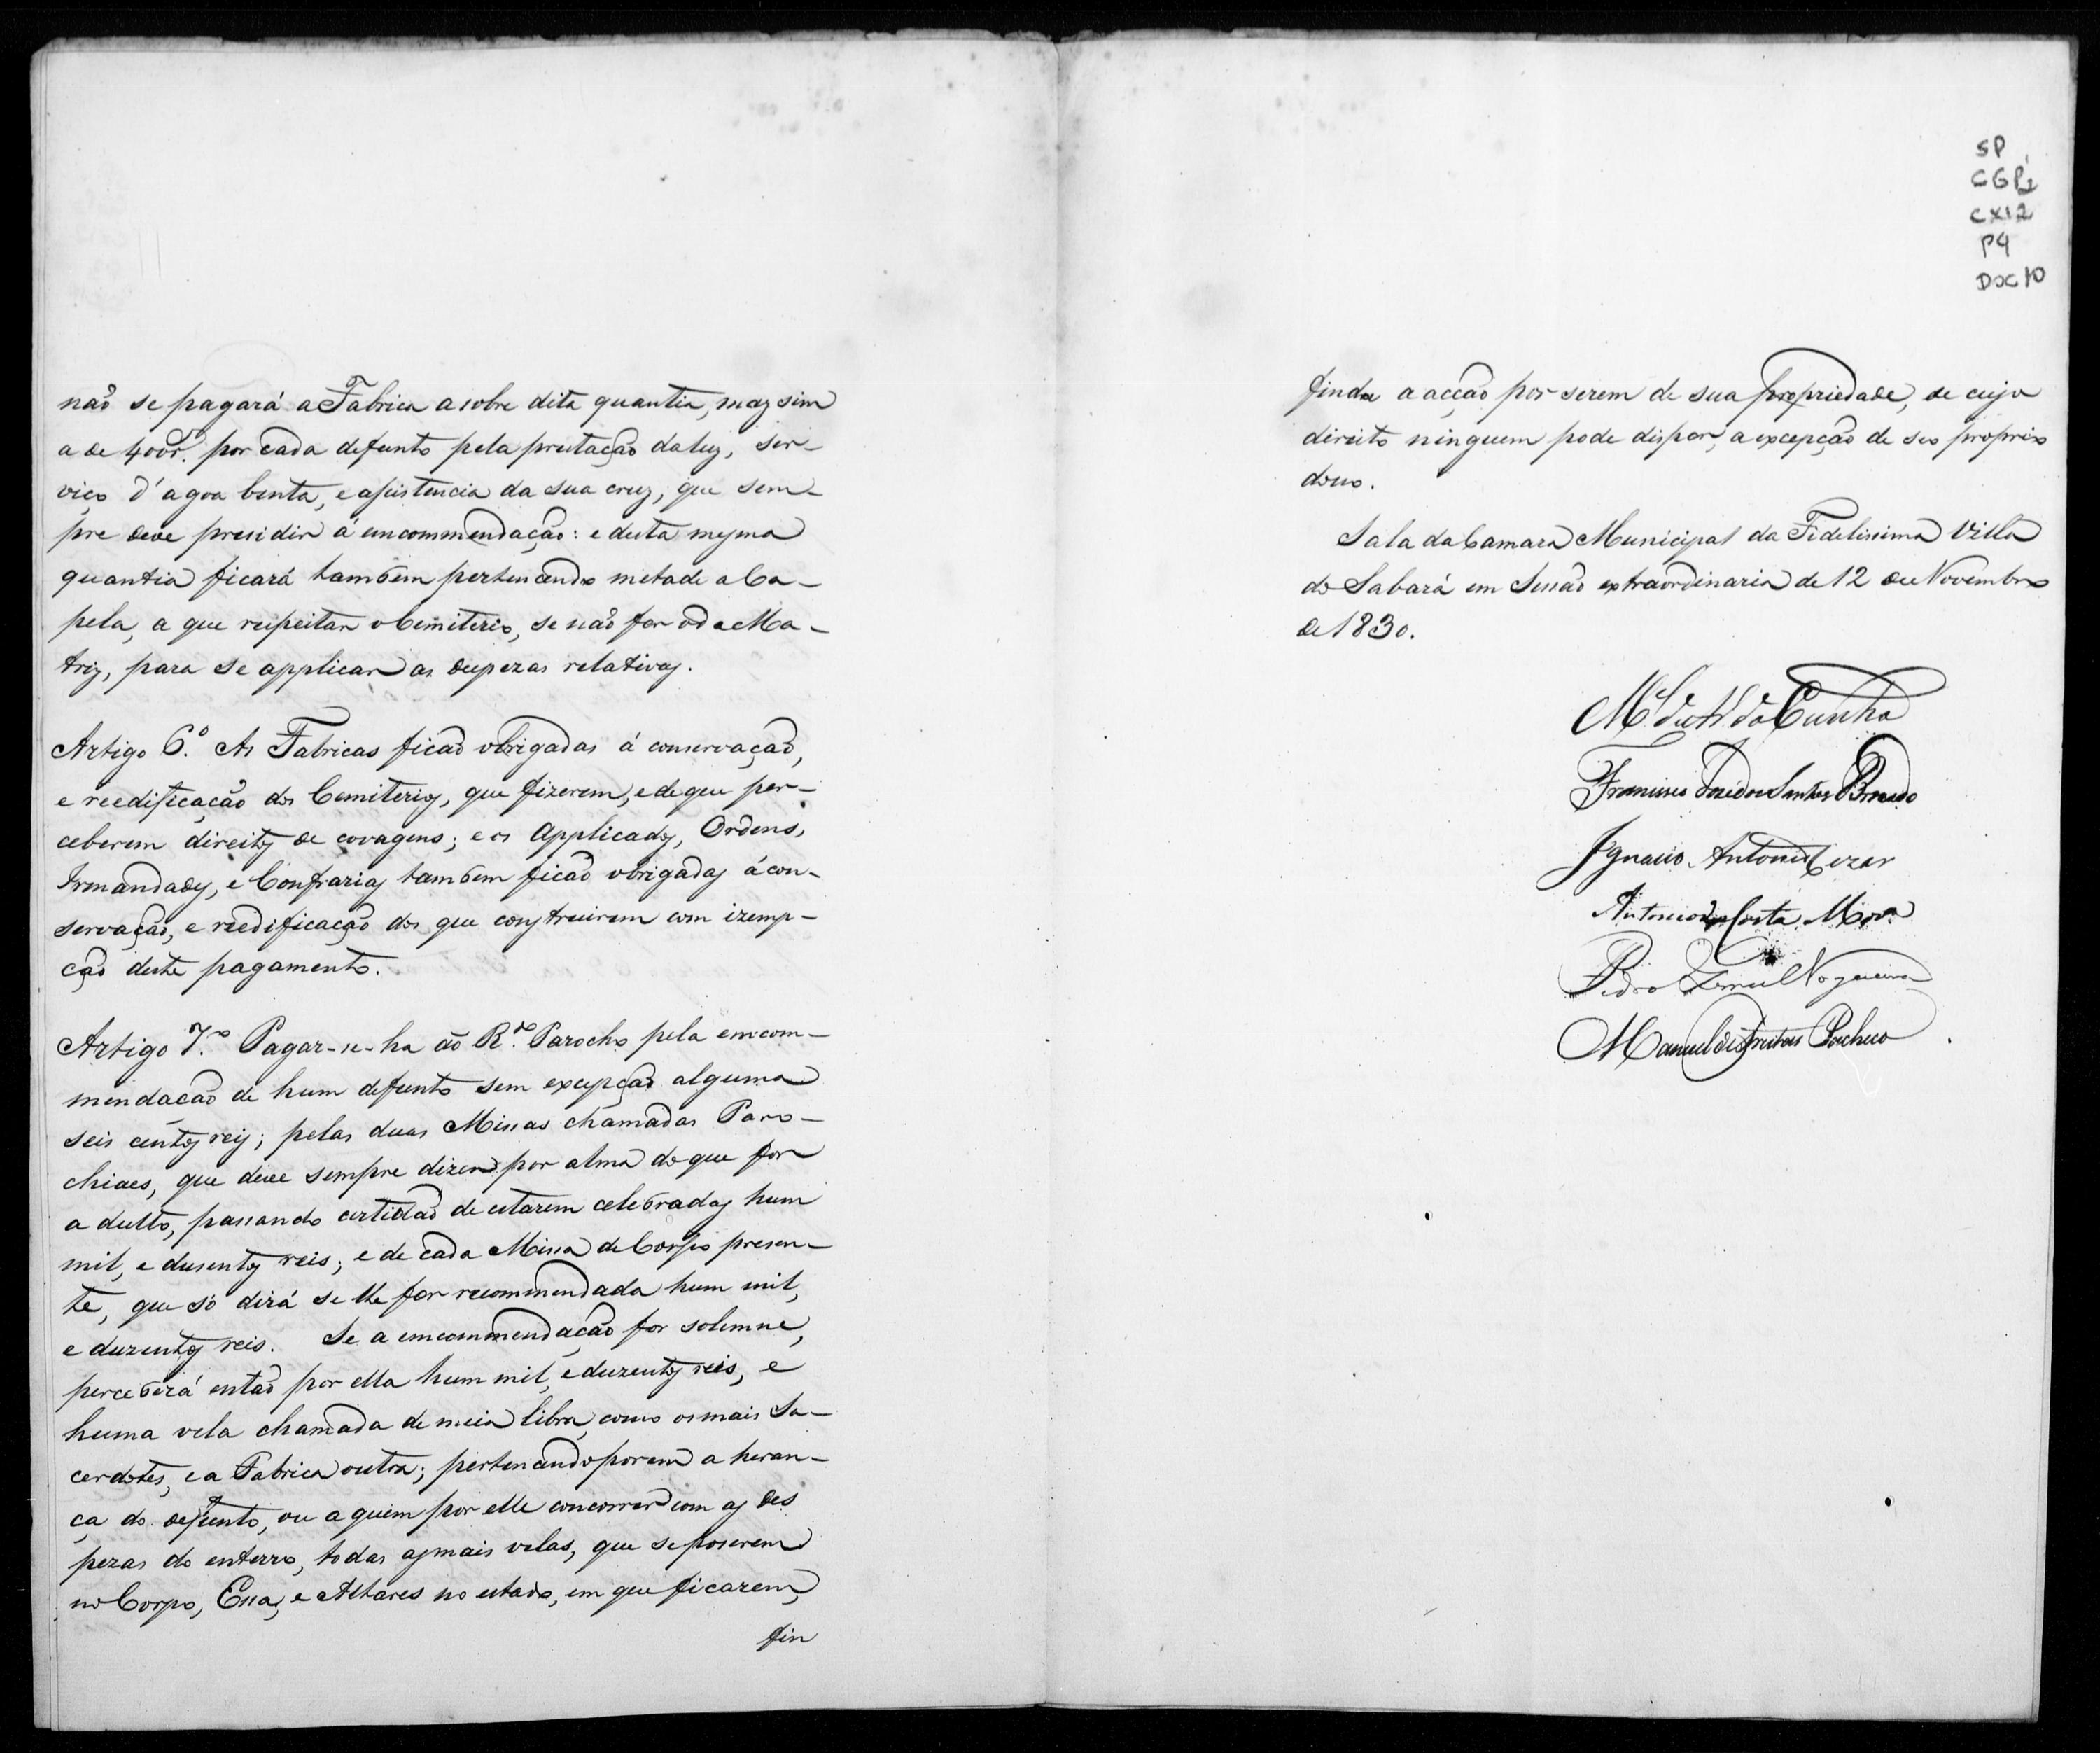 não se pagará a Fabrica a sobre dita quantia, mas sim
a de 400r.s por cada defunto pela prestação da luz, ser-
viço d'agoa benta, e assistencia da sua cruz, que sem-
pre deve presidir á emcommendação: e desta mesma
quantia ficará tambem pertencendo metade a Ca-
pela, a que respeitar o Cemiterio, se não for o da Ma-
triz, para se applicar as despezas relativas.
Artigo 6.º As Fabricas ficaõ obrigadas á conservação,
e reedificação dos Cemiterios, que fizerem, e de que per-
ceberem direitos de covagens; e os Applicados, Ordens,
Irmandades, e Confrarias tambem ficaõ obrigadas á con-
servação, e reedificação dos que construirem com izemp-
ção deste pagamento.
Artigo 7.º Pagar-se-ha ao R.do Parocho pela emcom-
mendação de hum defunto sem excepção alguma
seis centos reis; pelas duas Missas chamadas Paro-
chiaes, que deve sempre dizer por alma do que for
adulto, passando certidaõ de estarem celebradas hum
mil, e dusentos reis; e de cada Missa de Corpo presen-
te, que só dirá se lhe for recommendada hum mil,
e duzentos reis. Se a emcommendação for solemne,
perceberá entaõ por ella hum mil, e duzentos reis, e
huma vela chamada de meia libra, como os mais Sa-
cerdotes, e a Fabrica outra; pertencendo porem a heran-
ça do defunto, ou a quem por elle concorrer com as des
pezas do enterro, todas as mais velas, que se poserem
no Corpo, Essa, e Altares no estado, em que ficarem,
fin
SP
CGP1
CX12
P4
DOC10
finda a acção por serem de sua propriedade, de cujo
direito ninguem pode dispor, a excepção de seo proprio
dono.
Sala da Camara Municipal da Fidelissima Villa
do Sabará em Sessaõ extraordinaria de 12 de Novembro
de 1830.
M.el da Cunha
Francisco José dos Santos
Ignacio Antonio Cezar
Antonio da Costa
Pedro Nogueira
Manuel de Freitas Pacheco